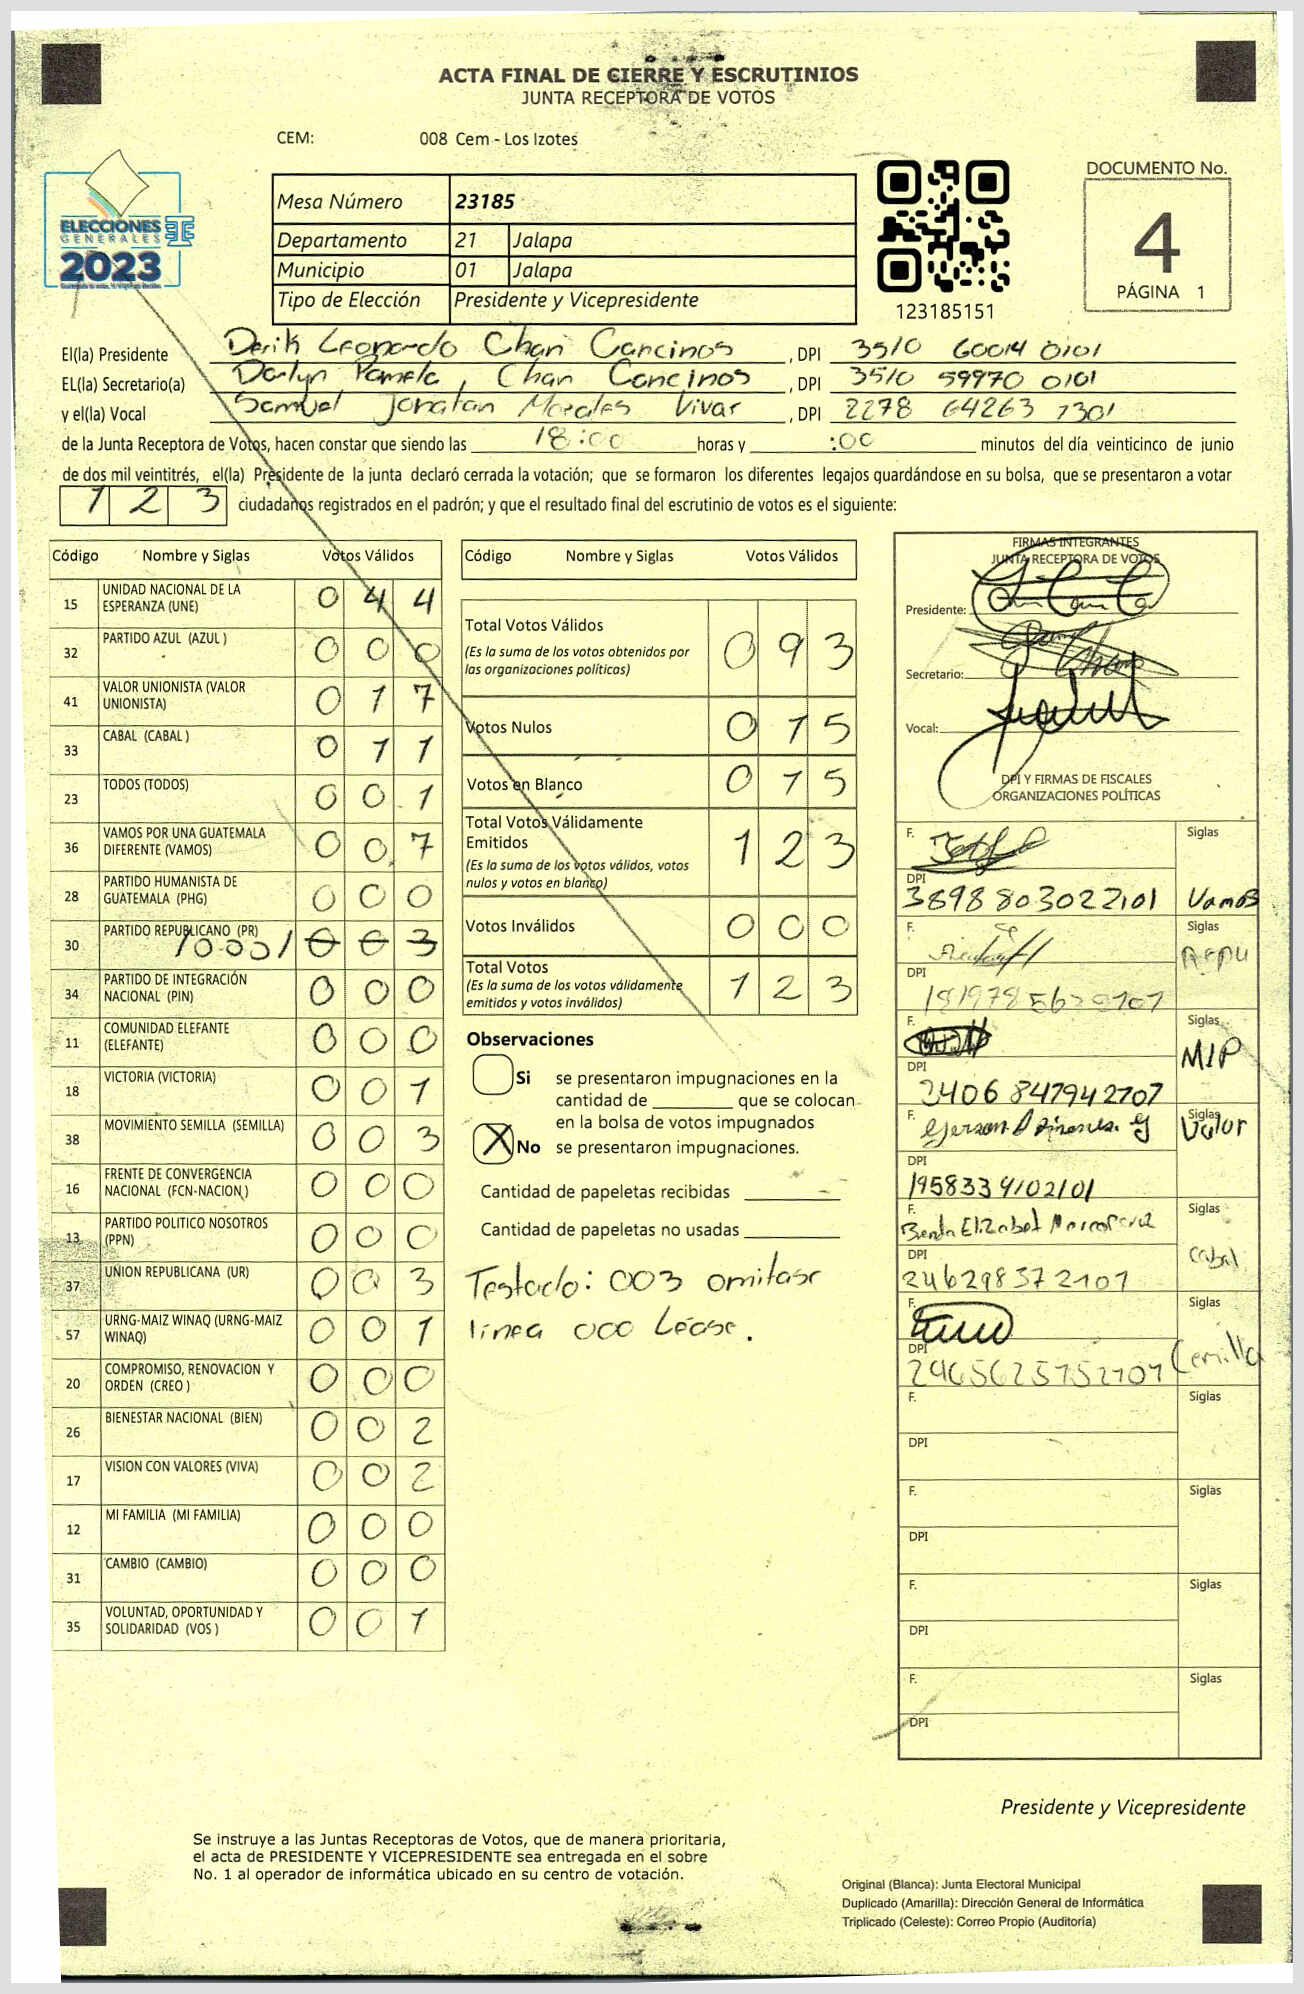 ACTA FINAL DE CIERRE Y ESCRUTINIOS
JUNTA RECEPTORA DE VOTOS
CEM: 008 Cem - Los Izotes
ELECCIONES
GENERALES
2023
Mesa Número 23185
Departamento 21 Jalapa
Municipio 01 Jalapa
Tipo de Elección Presidente y Vicepresidente
123185151
DOCUMENTO No.
4
PÁGINA 1
El(la) Presidente Derik Leonardo Chan Carcinos, DPI 3510 60014 0101
EL(la) Secretario(a) Darlyn Pamela, Chan Cancinos, DPI 3510 59970 0101
y el(la) Vocal Samuel Jonatan Morales Vivar, DPI 2278 64263 1301
de la Junta Receptora de Votos, hacen constar que siendo las 18:00 horas y :00 minutos del día veinticinco de junio
de dos mil veintitrés, el(la) Presidente de la junta declaró cerrada la votación; que se formaron los diferentes legajos guardándose en su bolsa, que se presentaron a votar
1 2 3 ciudadanos registrados en el padrón; y que el resultado final del escrutinio de votos es el siguiente:
Código Nombre y Siglas Votos Válidos
15 UNIDAD NACIONAL DE LA ESPERANZA (UNE) 0 4 4
32 PARTIDO AZUL (AZUL ) 0 0 0
41 VALOR UNIONISTA (VALOR UNIONISTA) 0 1 7
33 CABAL (CABAL ) 0 1 1
23 TODOS (TODOS) 0 0 1
36 VAMOS POR UNA GUATEMALA DIFERENTE (VAMOS) 0 0 7
28 PARTIDO HUMANISTA DE GUATEMALA (PHG) 0 0 0
30 PARTIDO REPUBLICANO (PR) 0 0 3
34 PARTIDO DE INTEGRACIÓN NACIONAL (PIN) 0 0 0
11 COMUNIDAD ELEFANTE (ELEFANTE) 0 0 0
18 VICTORIA (VICTORIA) 0 0 1
38 MOVIMIENTO SEMILLA (SEMILLA) 0 0 3
16 FRENTE DE CONVERGENCIA NACIONAL (FCN-NACION ) 0 0 0
13 PARTIDO POLITICO NOSOTROS (PPN) 0 0 0
37 UNION REPUBLICANA (UR) 0 0 3
57 URNG-MAIZ WINAQ (URNG-MAIZ WINAQ) 0 0 1
20 COMPROMISO, RENOVACION Y ORDEN (CREO ) 0 0 0
26 BIENESTAR NACIONAL (BIEN) 0 0 2
17 VISION CON VALORES (VIVA) 0 0 2
12 MI FAMILIA (MI FAMILIA) 0 0 0
31 CAMBIO (CAMBIO) 0 0 0
35 VOLUNTAD, OPORTUNIDAD Y SOLIDARIDAD (VOS ) 0 0 1
Código Nombre y Siglas Votos Válidos
Total Votos Válidos 0 9 3
(Es la suma de los votos obtenidos por
las organizaciones políticas)
Votos Nulos 0 1 5
Votos en Blanco 0 1 5
Total Votos Válidamente
Emitidos 1 2 3
(Es la suma de los votos válidos, votos
nulos y votos en blanco)
Votos Inválidos 0 0 0
Total Votos 1 2 3
(Es la suma de los votos válidamente
emitidos y votos inválidos)
Observaciones
Si se presentaron impugnaciones en la
cantidad de que se colocan
en la bolsa de votos impugnados
X No se presentaron impugnaciones.
Cantidad de papeletas recibidas
Cantidad de papeletas no usadas
Testado: 003 omitase
línea 000 Léase.
FIRMAS INTEGRANTES
JUNTA RECEPTORA DE VOTOS
Presidente:
Secretario:
Vocal:
DPI Y FIRMAS DE FISCALES
ORGANIZACIONES POLÍTICAS
F. Siglas
DPI
3898 803022101 Vamos
F. Siglas
DPI
F. Siglas
MIP
DPI
2406 847942107
F. Siglas
Valor
DPI
1958334102101
F. Siglas
Elizabet
DPI Cabal
2462983721 01
F. Siglas
DPI
2465625752101 Cemilla
F. Siglas
DPI
F. Siglas
DPI
F. Siglas
DPI
F. Siglas
DPI
Presidente y Vicepresidente
Se instruye a las Juntas Receptoras de Votos, que de manera prioritaria,
el acta de PRESIDENTE Y VICEPRESIDENTE sea entregada en el sobre
No. 1 al operador de informática ubicado en su centro de votación.
Original (Blanca): Junta Electoral Municipal
Duplicado (Amarilla): Dirección General de Informática
Triplicado (Celeste): Correo Propio (Auditoría)